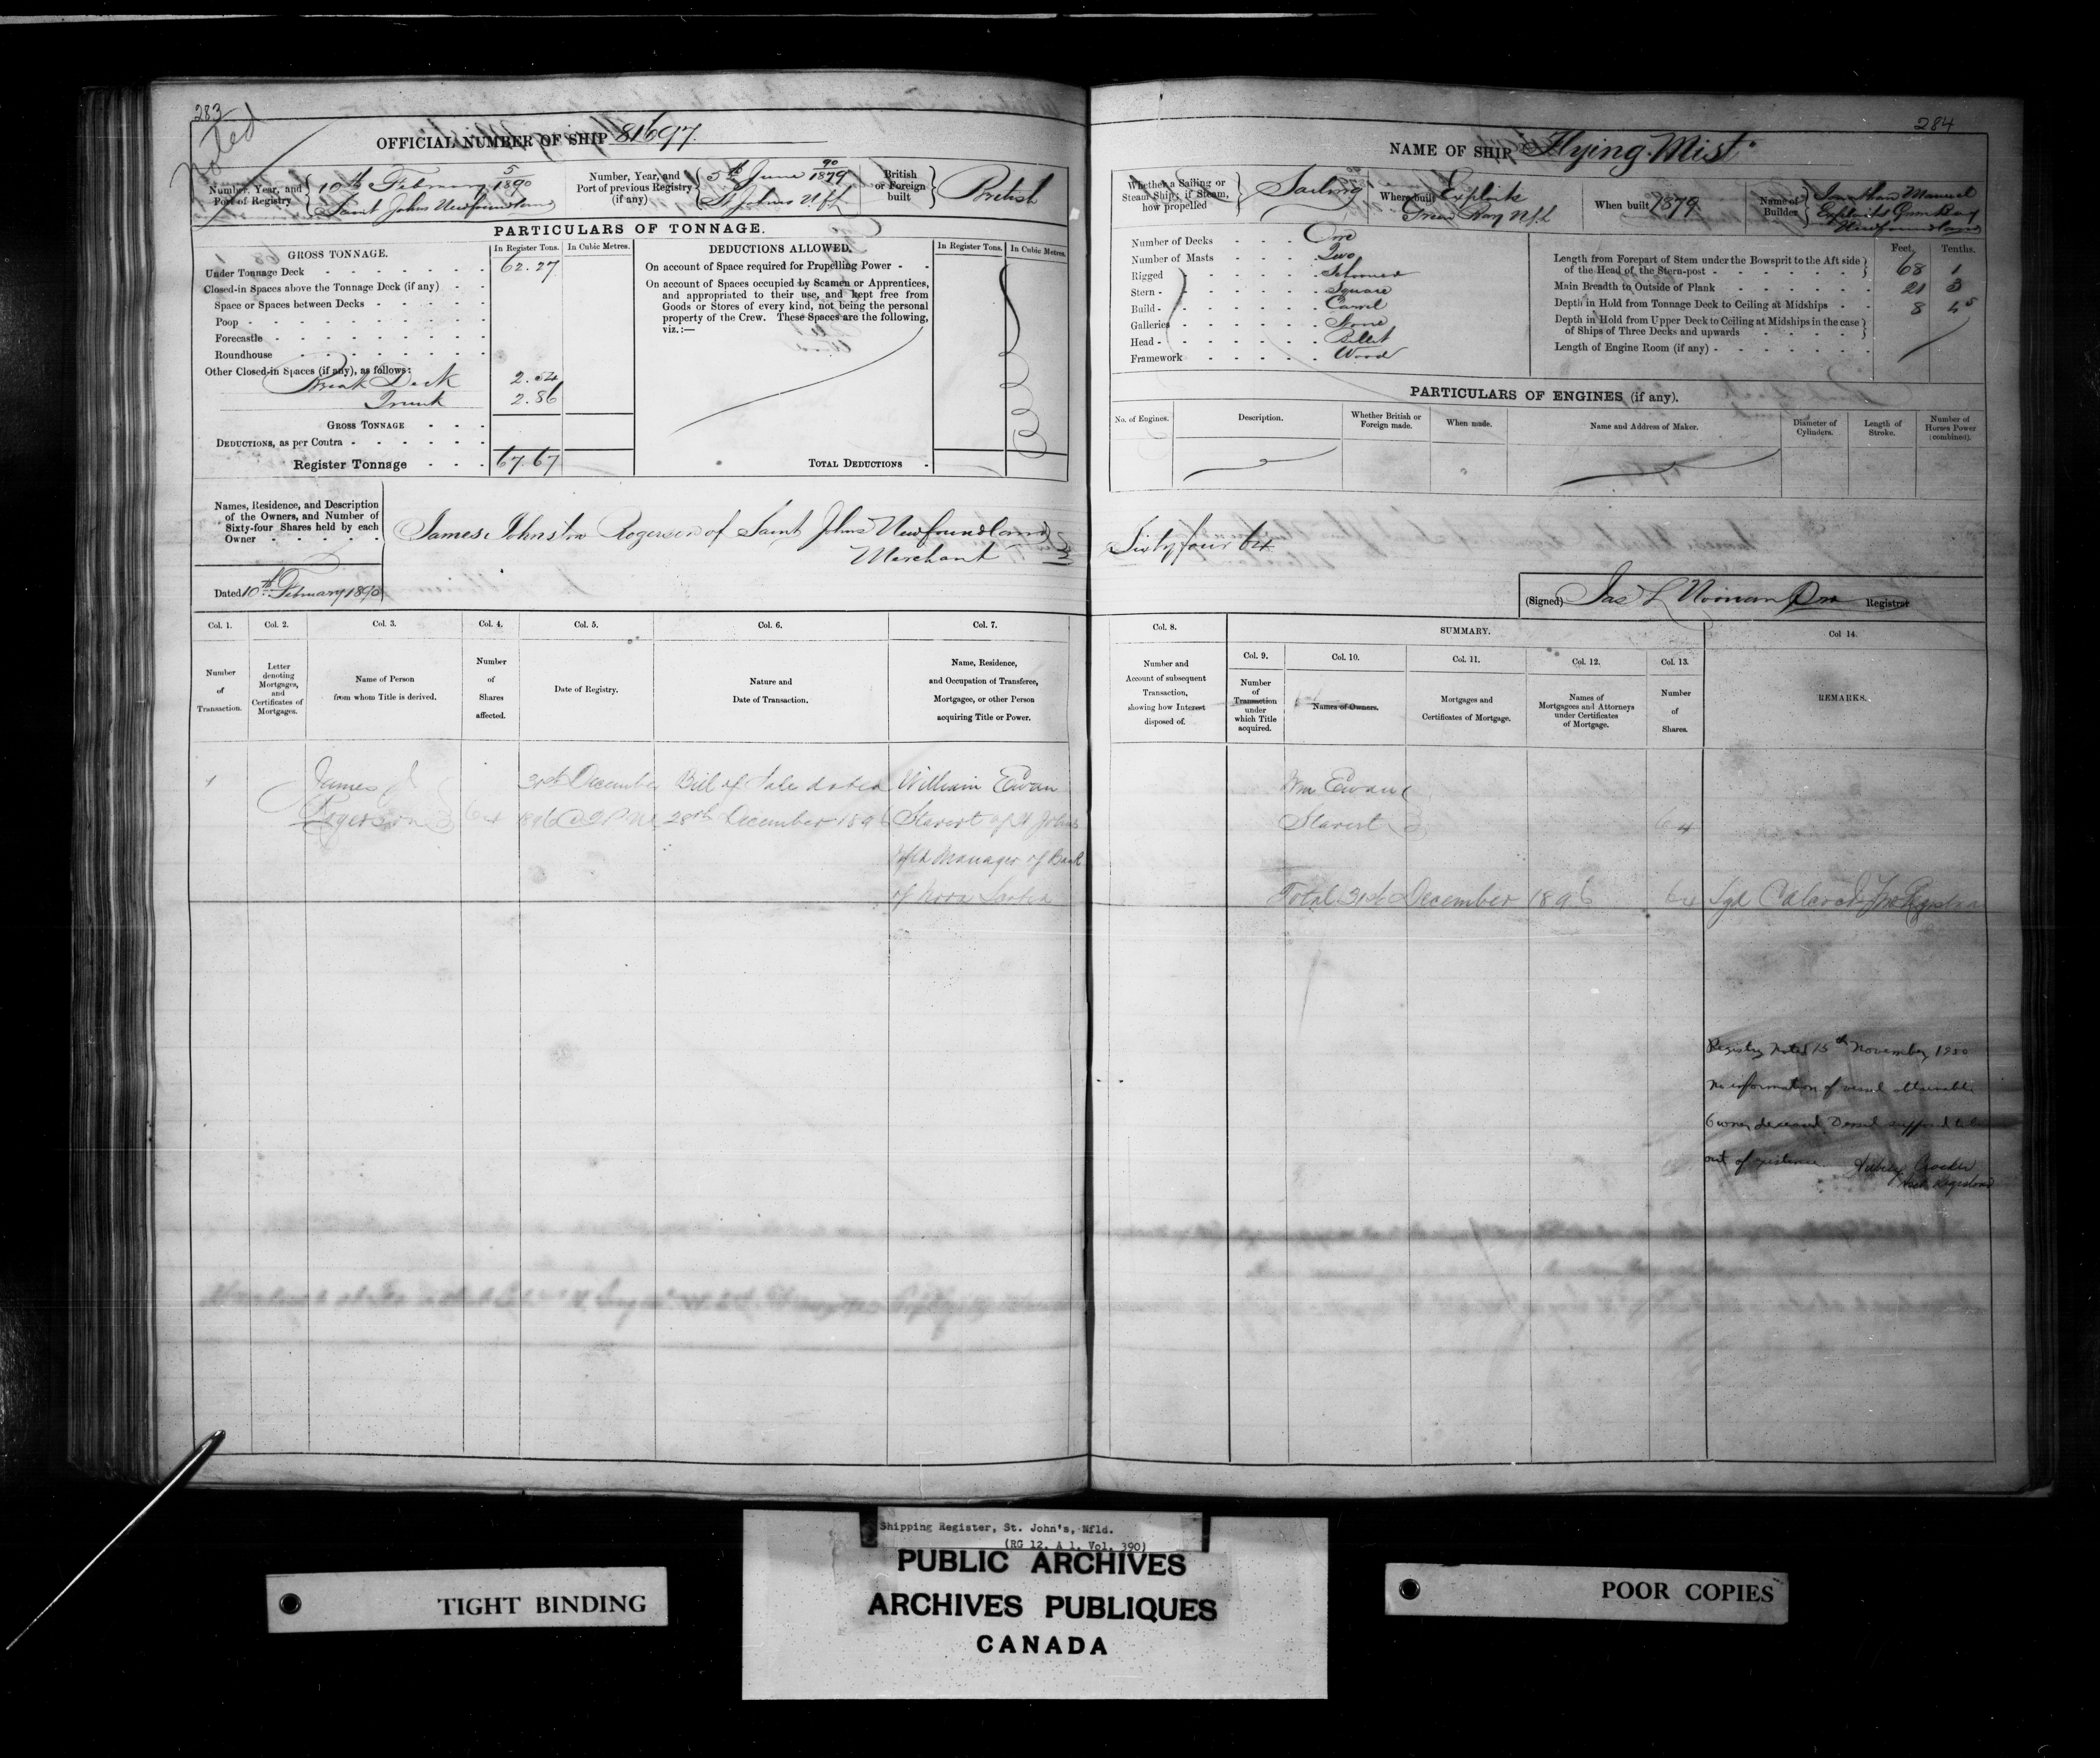 283
Noted
OFFICIAL NUMBER OF SHIP 81697.
Number, Year, and Port of Registry
5/1890
10th February
Saint Johns Newfoundland
Number, Year, and Port of previous Registry (if any)
90/1879
5th June
St Johns Nfld
British or Foreign built
British
PARTICULARS OF TONNAGE.
GROSS TONNAGE.
In Register Tons.
In Cubic Metres.
Under Tonnage Deck
62.27
Closed-in Spaces above the Tonnage Deck (if any)
Space or Spaces between Decks
Poop
Forecastle
Roundhouse
Other Closed-in Spaces (if any), as follows:
Break Deck 2.54
Trunk 2.86
GROSS TONNAGE
DEDUCTIONS, as per Contra
Register Tonnage 67.67
DEDUCTIONS ALLOWED.
In Register Tons.
In Cubic Metres.
On account of Space required for Propelling Power
On account of Spaces occupied by Seamen or Apprentices,
and appropriated to their use, and kept free from
Goods or Stores of every kind, not being the personal
property of the Crew. These Spaces are the following,
viz.:—
TOTAL DEDUCTIONS
Names, Residence, and Description
of the Owners, and Number of
Sixty-four Shares held by each
Owner
James Johnston Rogerson of Saint Johns Newfoundland
Merchant
Dated 10th February 1890
284
NAME OF SHIP Flying Mist
Whether a Sailing or Steam Ship; if Steam, how propelled
Sailing
Where built
Exploits
Green Bay Nfld
When built 1879
Name of Builder
Jonathan Manuel
Exploits Green Bay
Newfoundland
Number of Decks One
Number of Masts Two
Rigged Schooner
Stern Square
Build Carvel
Galleries None
Head Billet
Framework Wood
Feet. Tenths.
Length from Forepart of Stem under the Bowsprit to the Aft side
of the Head of the Stern-post 68 1
Main Breadth to Outside of Plank 21 3
Depth in Hold from Tonnage Deck to Ceiling at Midships 8
Depth in Hold from Upper Deck to Ceiling at Midships in the case
of Ships of Three Decks and upwards
Length of Engine Room (if any)
PARTICULARS OF ENGINES (if any).
No. of Engines.
Description.
Whether British or Foreign made.
When made.
Name and Address of Maker.
Diameter of Cylinders.
Length of Stroke.
Number of Horses Power (combined).
Sixty four 64
(Signed) Jas L Noonan Registrar
Col. 1. Col. 2. Col. 3. Col. 4. Col. 5. Col. 6. Col. 7.
Number of Transaction.
Letter denoting Mortgages, and Certificates of Mortgages.
Name of Person from whom Title is derived.
Number of Shares affected.
Date of Registry.
Nature and Date of Transaction.
Name, Residence, and Occupation of Transferee, Mortgagee, or other Person acquiring Title or Power.
Col. 8.
SUMMARY.
Col. 9. Col. 10. Col. 11. Col. 12. Col. 13.
Col 14.
Number and Account of subsequent Transaction, showing how Interest disposed of.
Number of Transaction under which Title acquired.
Names of Owners.
Mortgages and Certificates of Mortgage.
Names of Mortgagees and Attorneys under Certificates of Mortgage.
Number of Shares.
REMARKS.
1 James J 31st December Bill of Sale dated William Ewan
Rogerson 64 1896 @ 2 PM 28th December 1896 Stavert of St Johns
Nfld Manager of Bank
of Nova Scotia
Wm Ewan
Stavert 64
Total 31st December 1896 64
Registry noted 15th November, 1950
No information of vessel obtainable
Owner deceased. Vessel supposed to be
out of existence. Crocker
Registrar
Shipping Register, St. John's, Nfld.
(RG 12, A 1, Vol. 390)
PUBLIC ARCHIVES
ARCHIVES PUBLIQUES
CANADA
TIGHT BINDING
POOR COPIES